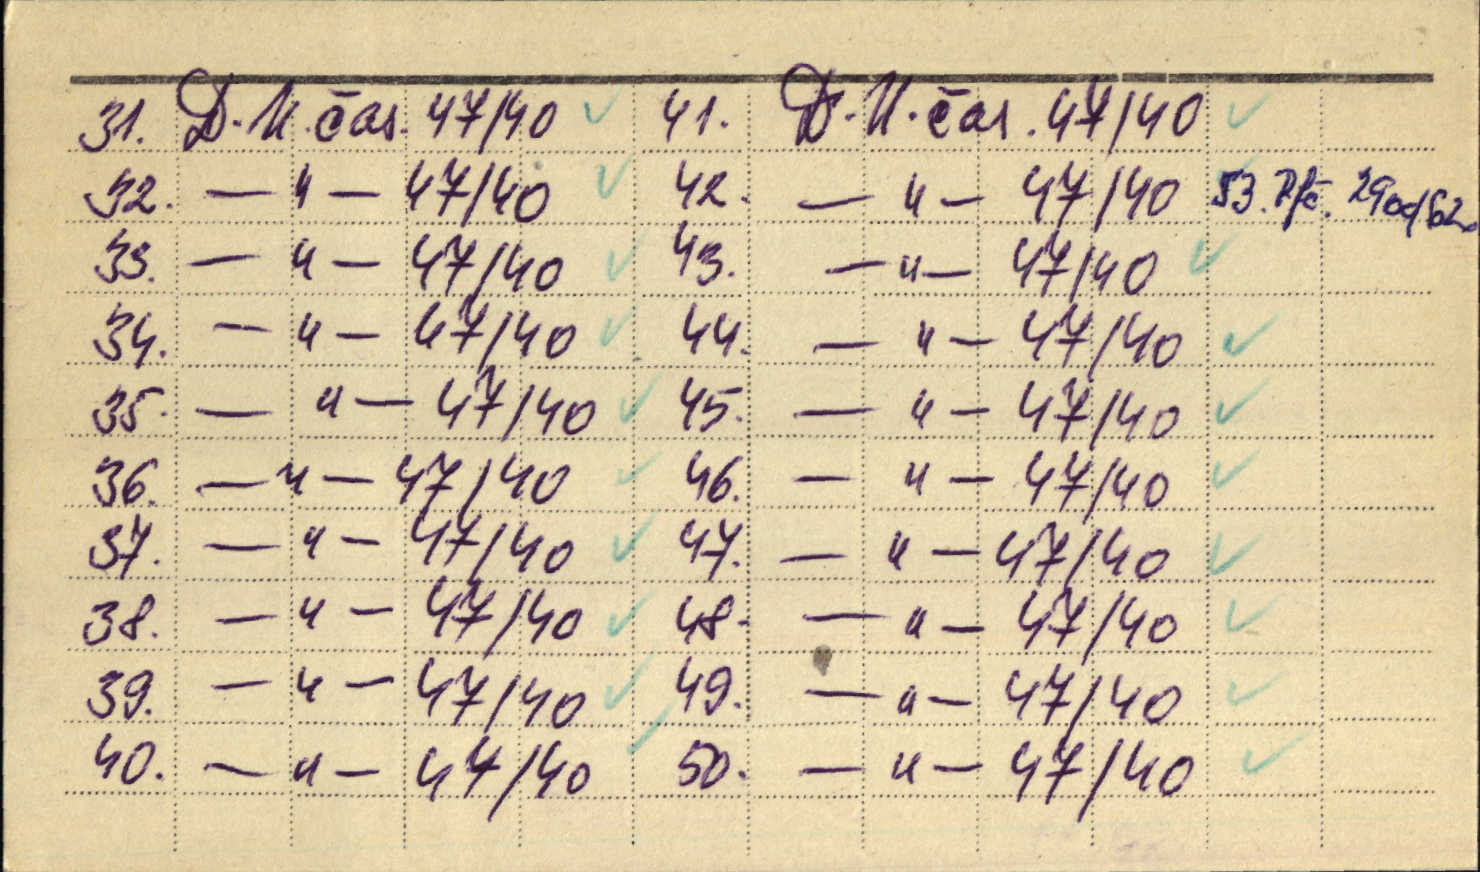 31. D. U. čas. 47/40 41. D. U. čas. 47/40
32. — " — 47/40 42. — " — 47/40 53.
33. — " — 47/40 43. — " — 47/40
34. — " — 47/40 44. — " — 47/40
35. — " — 47/40 45. — " — 47/40
36. — " — 47/40 46. — " — 47/40
37. — " — 47/40 47. — " — 47/40
38. — " — 47/40 48. — " — 47/40
39. — " — 47/40 49. — " — 47/40
40. — " — 47/40 50. — " — 47/40